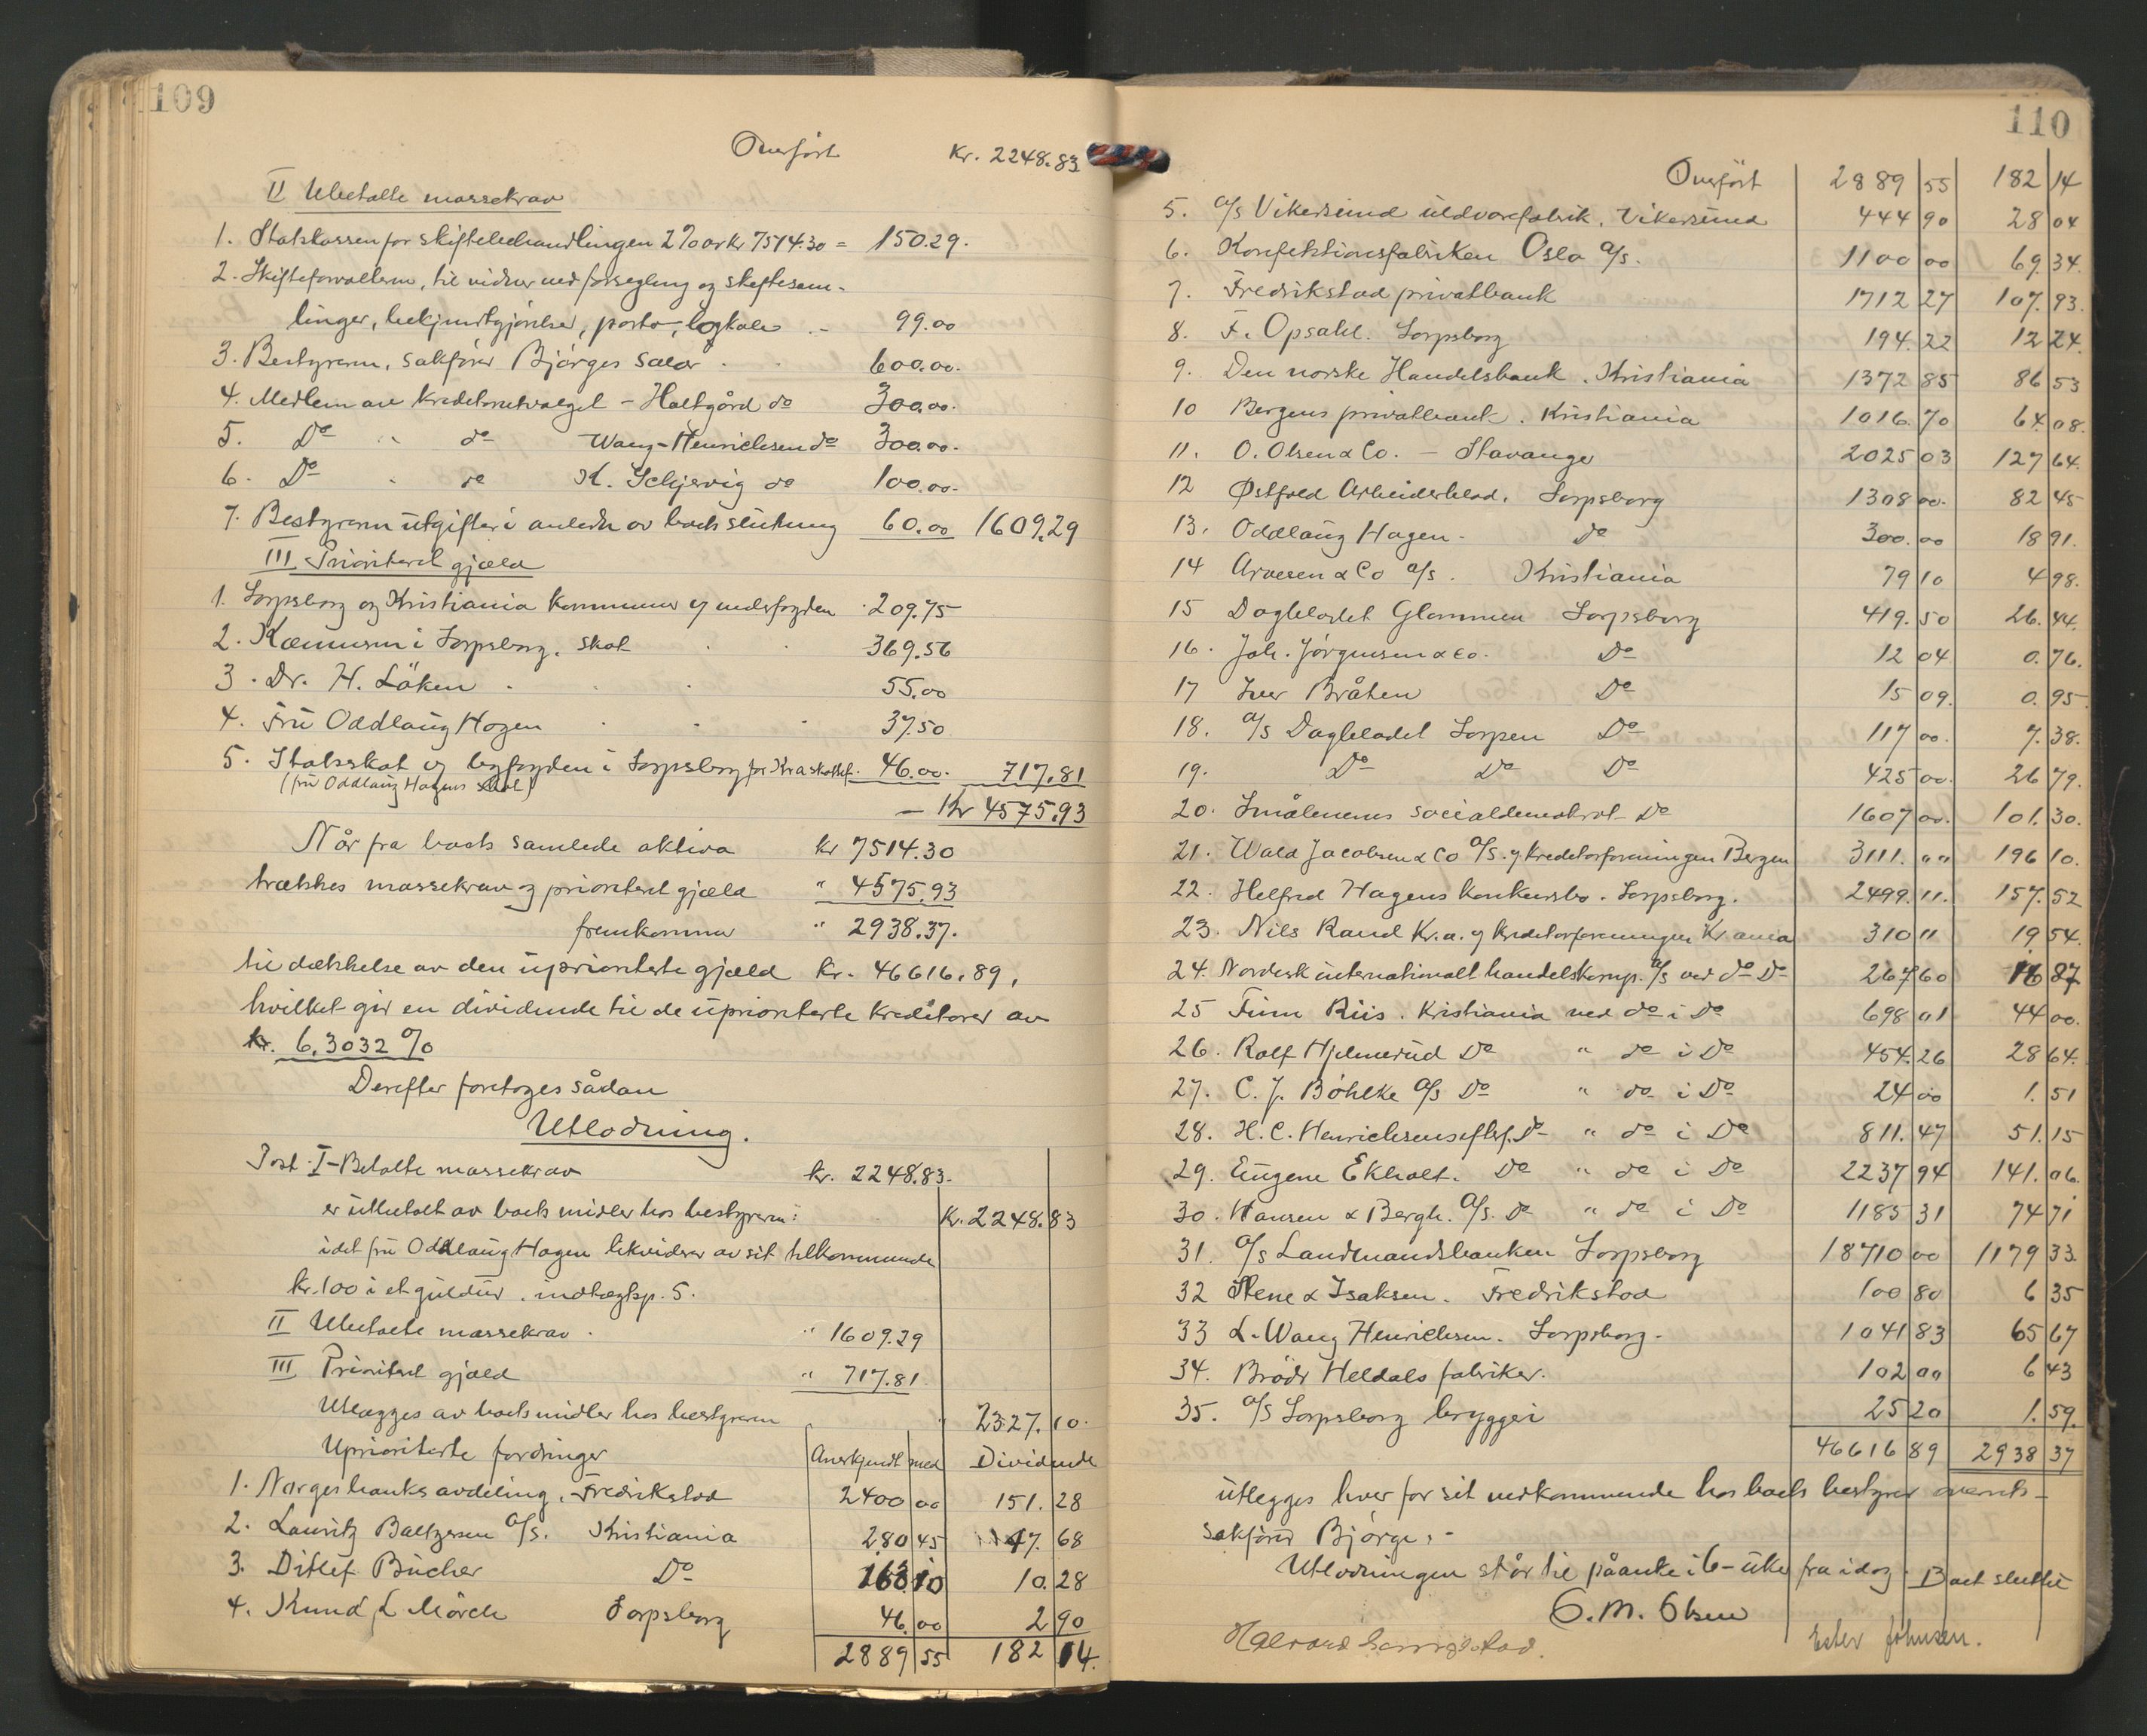 109
Overført Kr. 2248.83
II Ubetalte massekrav
1. Statskassen for skiftebehandlingen 2% av kr 7514.30 = 150.29.
2. Skifteforvalteren, til vidner ved forsegling og skiftesam-
linger, bekjendtgjørelser, porto, .- 99.00
3. Bestyreren, sakfører Bjørges salær 600.00.
4. Medlem av kreditorutvalget - Holtgård do 300.00.
5. Do " do Wang-Henrichsen do 300.00.
6. Do " do K. Schjervig do 100.00-
7. Bestyreren utgifter i anledn av boets slutning 60.00 1609.29
III Prioritert gjæld
1. Sarpsborg og Kristiania kommuner v/ underfogden 209.75
2. Kæmneren i Sarpsborg, skat 369.56
3. Dr. H. Löken 55.00
4. Fru Oddlaug Hagen 37.50
5. Statsskat v/ byfogden i Sarpsborg for Kra skattef. 46.00. 717.81
(fru Oddlaug Hagens skat)
- Kr 4575.93
Når fra boets samlede aktiva kr 7514.30
trækkes massekrav og prioritert gjæld " 4575.93
fremkommer " 2938.37.
til dækkelse av den uprioriterte gjæld kr. 46616.89,
hvilket gir en dividende til de uprioriterte kreditorer av
kr. 6,3032 %
Derefter foretages sådan
Utlodning.
Post I-Betalte massekrav kr. 2248.83.
er utbetalt av boets midler hos bestyreren: Kr. 2248.83
idet fru Oddlaug Hagen likviderer av sit tilkommende
kr. 100 i et guldur, indtægtsp. 5.
II Ubetalte massekrav. " 1609.29
III Prioritert gjæld " 717.81
Utlægges av boets midler hos bestyreren 2327.10.
Uprioriterte fordringer Anerkjendt med Dividende
1. Norges banks avdeling, Fredrikstad 2400 00 151.28
2. Lauritz Baltzersen A/S. Kristiania 280 45 17.68
3. Ditlef Bücher Do 163 10 10.28
4. Knud L Mörch Sarpsborg 46.00 2 90
2889 55 182 14.
110
Overført 2889 55 182 14
5. A/S Vikersund uldvarefabrik, Vikersund 444 90 28 04
6. Konfektionsfabriken Oslo A/S. 1100 00 69.34.
7. Fredrikstad privatbank 1712 27 107.93.
8. F. Opsahl. Sarpsborg 194.22 12 24.
9. Den norske Handelsbank. Kristiania 1372 85 86 53
10 Bergens privatbank. Kristiania 1016.70 64.08.
11. O. Olsen & Co. - Stavanger 2025 03 127 64.
12 Østfold Arbeiderblad. Sarpsborg 1308 00. 82 45
13. Oddlaug Hagen - Do 300.00 18 91.
14 Arnesen & Co A/S. Kristiania 79 10 4 98.
15 Dagbladet Glommen Sarpsborg 419.50 26.44.
16. Joh. Jörgensen & Co. Do 12 04 0.76.
17 Iver Bråten Do 15 09. 0.95
18. A/S Dagbladet Sarpen Do 117 00. 7.38.
19. Do Do Do 425 00. 26 79.
20. Smålenenes socialdemokrat Do 1607 00. 101.30.
21. Wald Jacobsen & Co A/S. v/ kreditorforeningen Bergen 3111. "" 196 10.
22. Helfred Hagens konkursbo. Sarpsborg. 2499.11. 157.52
23. Nils Rand Kr.a. v/ kreditorforeningen Kr.ania 310 11 19 54.
24. Nordisk internationalt handelskomp. A/S ved do Do 267 60 16 87
25 Finn Riis. Kristiania ved do i Do 698 01 44 00.
26. Rolf Hjelmerud Do " do i Do 454.26 28 64.
27. C. J. Böhlke A/S Do " do i Do 24 00 1.51
28. H. C. Henrichsens efterf. Do " do i Do 811.47 51.15
29. Eugene Ekholt. Do " do i Do 2237 94 141.06.
30. Hansen & Bergh. A/S. Do " do i Do 1185 31 74 71
31. A/S Landmandsbanken Sarpsborg 18710 00 1179 33.
32 Stene & Isaksen. Fredrikstad 100 80 6 35
33 L. Wang Henrichsen. Sarpsborg. 1041 83 65 67
34. Brødr Heldals fabriker. 102 00 6 43
35. A/S Sarpsborg bryggeri 25 20 1.59.
46616 89 2938 37
utlegges hver for sit vedkommende hos boets bestyrer overrets-
sakfører Bjørge.-
Utlodningen står til påanke i 6-uker fra idag. Boet sluttet
O. M. Olsen
Halvard Ester Johnsen.